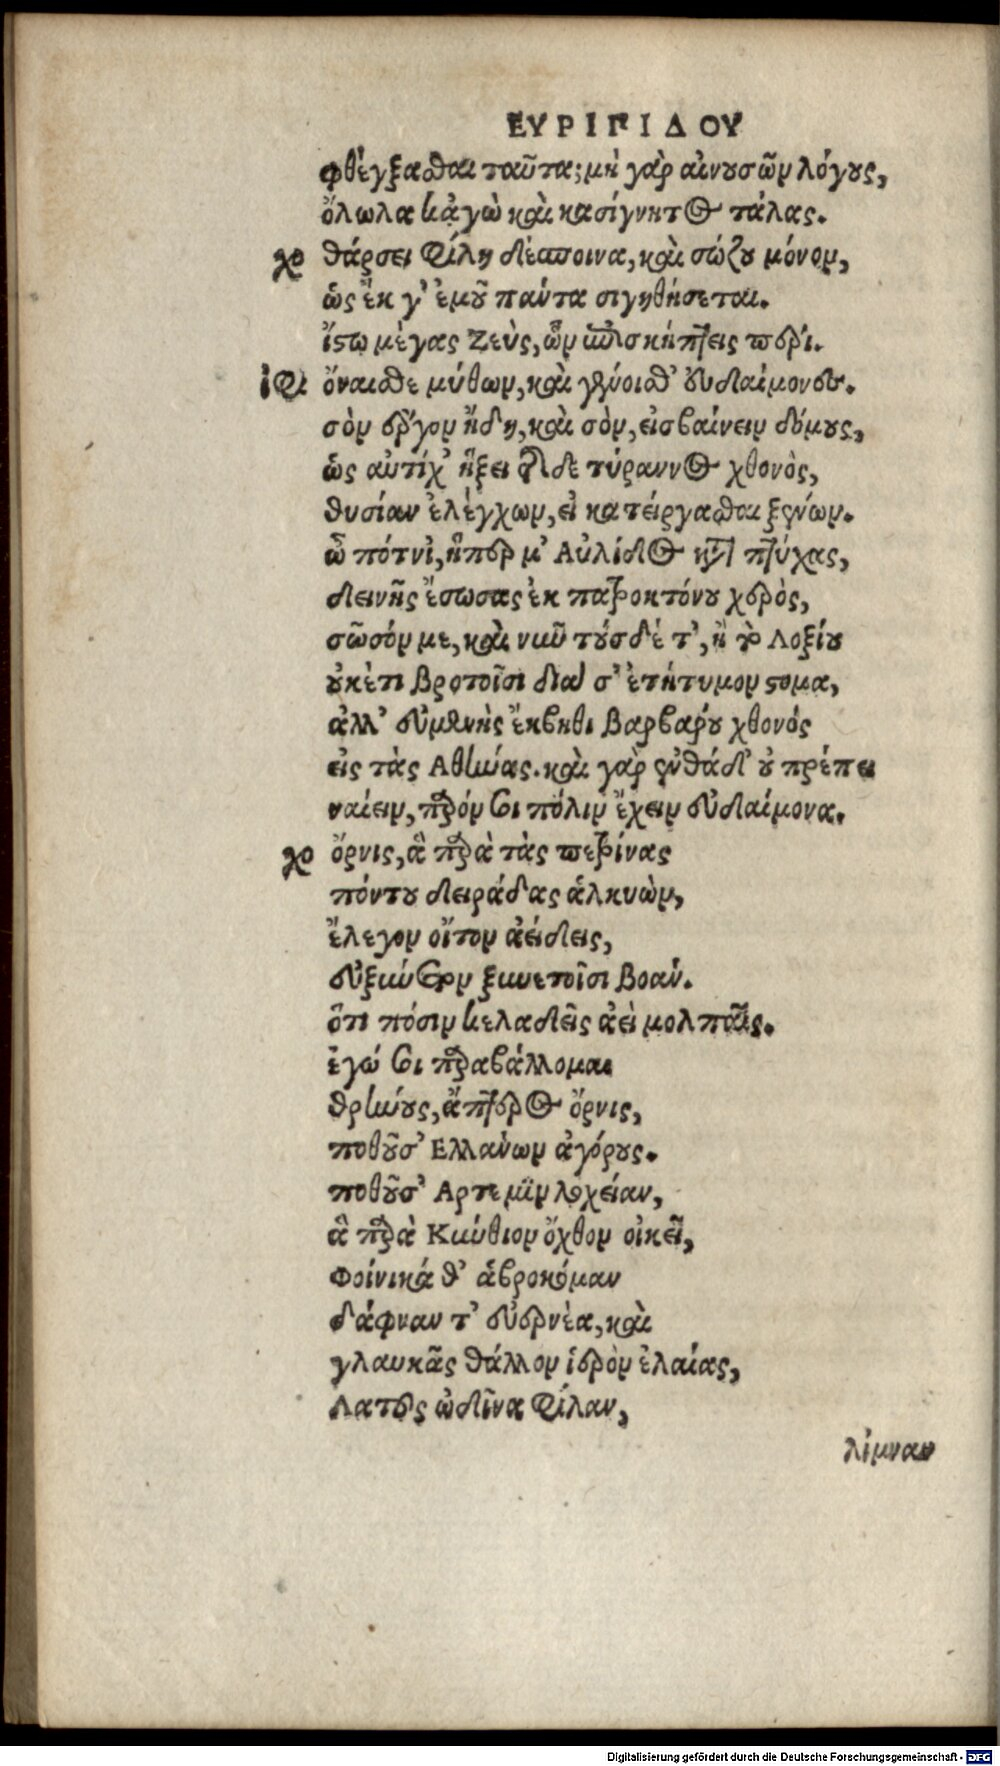 ΕΥΡΙΠΙΔΟΥ
φθέγξασθαι ταῦτα; μὴ γὰρ αἰνουσῶν λόγους,
ὄλωλα κἀγὼ καὶ κασίγνητος τάλας.
χο θάρσει φίλη δέσποινα, καὶ σώζου μόνον,
ὡς ἔκ γ' ἐμοῦ πάντα σιγηθήσεται.
ἴστω μέγας Ζεὺς, ὧν ἐπισκήπτεις περί.
ἰφι ὄναισθε μύθων, καὶ γένοισθ' εὐδαίμονες.
σὸν ἔργον ἤδη, καὶ σὸν, εἰσβαίνειν δόμους,
ὡς αὐτίχ' ἥξει τῆσδε τύραννος χθονὸς,
θυσίαν ἐλέγχων, εἰ κατείργασθαι ξένων.
ὦ πότνι', ἥπερ μ' Αὐλίδος κατὰ πτύχας,
δεινῆς ἔσωσας ἐκ πατροκτόνου χερὸς,
σῶσόν με, καὶ νῦν τούσδέ τ', ἢ τὸ Λοξίου
οὐκέτι βροτοῖσι διὰ σ' ἐτήτυμον στομα,
ἀλλ' εὐμενὴς ἔκβηθι βαρβάρου χθονός
εἰς τὰς Αθήνας. καὶ γὰρ ἐνθάδ' οὐ πρέπει
ναίειν, παρόν σοι πόλιν ἔχειν εὐδαίμονα.
χο ὄρνις, ἃ παρὰ τὰς πετρίνας
πόντου δειράδας ἀλκυὼν,
ἔλεγον οἴτον ἀείδεις,
εὐξύνετον ξυνετοῖσι βοάν.
ὅτι πόσιν κελαδεῖς ἀεὶ μολπαῖς.
ἐγώ σοι παραβάλλομαι
θρήνους, ἄπτερος ὄρνις,
ποθοῦσ' Ελλάνων ἀγόρους.
ποθοῦσ' Αρτεμιν λοχείαν,
ἃ παρὰ Κύνθιον ὄχθον οἰκεῖ,
Φοίνικά θ' ἁβροκόμαν
δάφναν τ' εὐερνέα, καὶ
γλαυκᾶς θάλλον ἱερὸν ἐλαίας,
Λατοῦς ὠδῖνα φίλαν,
λίμναν
Digitalisierung gefördert durch die Deutsche Forschungsgemeinschaft - DFG